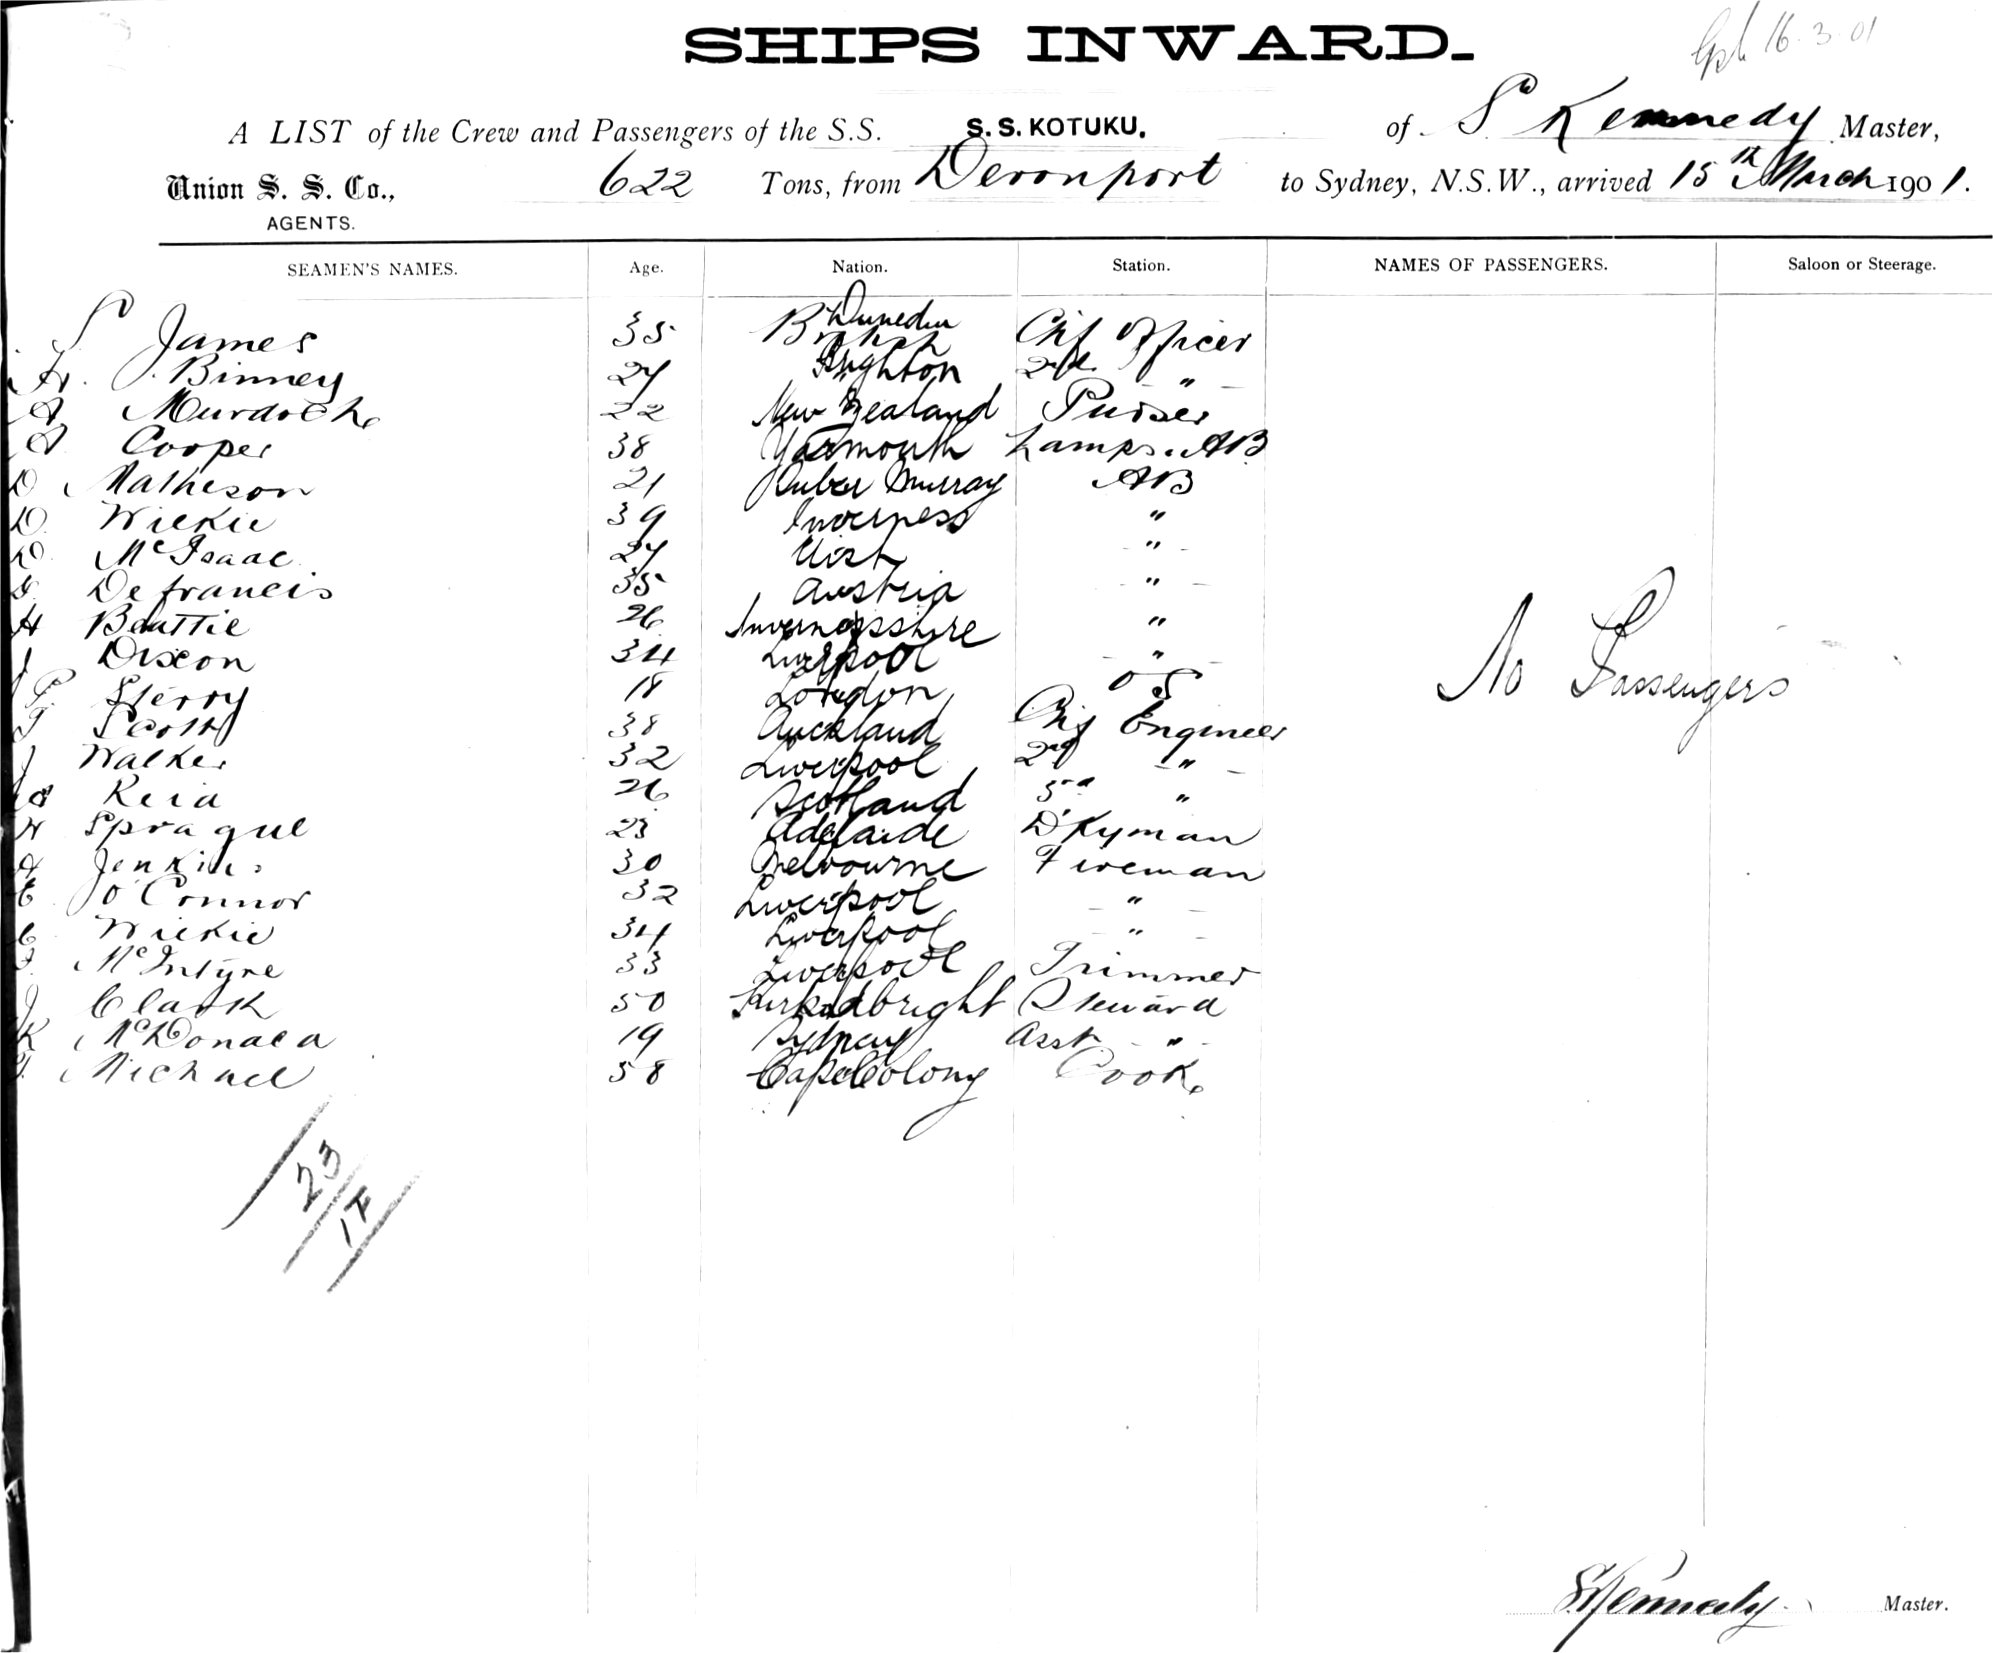 SHIPS INWARD.
16.3.01
A LIST of the Crew and Passengers of the S.S. S.S. KOTUKU. of S Kennedy Master,
Union S. S. Co., 622 Tons, from Devonport to Sydney, N.S.W., arrived 15th March 1901.
AGENTS.
SEAMEN'S NAMES. Age. Nation. Station. NAMES OF PASSENGERS. Saloon or Steerage.
Dunedin
S James 35 British Chf Officer
Binney 27 Brighton 2d "
A Murdoch 22 New Zealand Purser
A Cooper 38 Yarmouth Lamps. AB
D Matheson 21 Murray AB
D. Wilkie 39 Inverness "
D. McIsaac 27 Uist "
G. Defrancis 35 Austria "
H Beattie 26 Invernessshire "
J Dixon 34 Liverpool "
P. Sterry 18 London OS
T Scott 38 Auckland Chf Engineer
J Walker 32 Liverpool 2nd "
Reid 26 Scotland 3rd "
H Sprague 23 Adelaide D'Kyman
A Jenkins 30 Melbourne Fireman
E O'Connor 32 Liverpool "
C Wilkie 34 Liverpool "
J. McIntyre 33 Liverpool Trimmer
J Clark 50 Kirkudbright Steward
K McDonald 19 Sydney Asst "
Michael 58 Cape Colony Cook
No Passengers
23
S Kennedy Master.